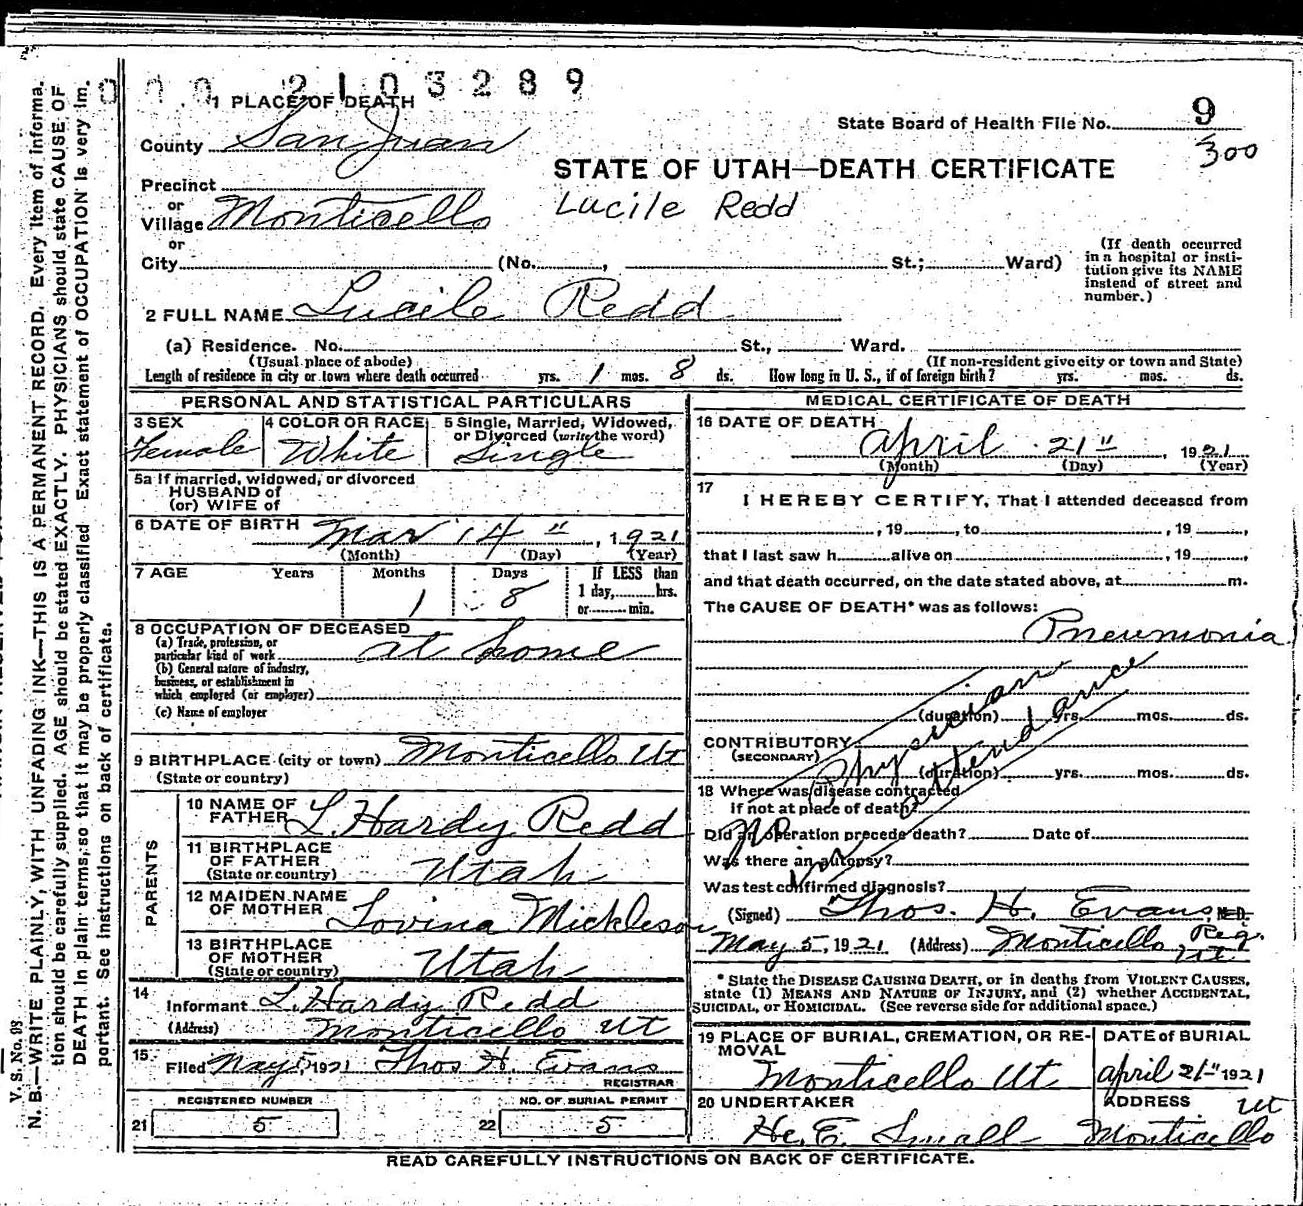 2103289
1 PLACE OF DEATH
County San Juan
State Board of Health File No. 9
300
STATE OF UTAH—DEATH CERTIFICATE
Precinct
or
Village Monticello
Lucile Redd
or
City (No. , St.; Ward)
(If death occurred in a hospital or institution give its NAME instead of street and number.)
2 FULL NAME Lucile Redd
(a) Residence. No. St., Ward.
(Usual place of abode) (If non-resident give city or town and State)
Length of residence in city or town where death occurred yrs. 1 mos. 8 ds. How long in U. S., if of foreign birth? yrs. mos. ds.
PERSONAL AND STATISTICAL PARTICULARS
3 SEX 4 COLOR OR RACE 5 Single, Married, Widowed, or Divorced (write the word)
Female White Single
5a If married, widowed, or divorced
HUSBAND of
(or) WIFE of
6 DATE OF BIRTH Mar 14" , 1921
(Month) (Day) (Year)
7 AGE Years Months Days If LESS than
1 day, hrs.
or min.
1 8
8 OCCUPATION OF DECEASED
(a) Trade, profession, or
particular kind of work at home
(b) General nature of industry,
business, or establishment in
which employed (or employer)
(c) Name of employer
9 BIRTHPLACE (city or town) Monticello Ut
(State or country)
PARENTS
10 NAME OF
FATHER L. Hardy Redd
11 BIRTHPLACE
OF FATHER
(State or country) Utah
12 MAIDEN NAME
OF MOTHER Lovina Mickleson
13 BIRTHPLACE
OF MOTHER
(State or country) Utah
14
Informant L. Hardy Redd
(Address) Monticello Ut
15
Filed May 5, 1921 Thos H. Evans
REGISTRAR
REGISTERED NUMBER NO. OF BURIAL PERMIT
21 5 22 5
MEDICAL CERTIFICATE OF DEATH
16 DATE OF DEATH
April 21" , 1921
(Month) (Day) (Year)
17
I HEREBY CERTIFY, That I attended deceased from
, 19 , to , 19 ,
that I last saw h alive on , 19 ,
and that death occurred, on the date stated above, at m.
The CAUSE OF DEATH* was as follows:
Pneumonia
(duration) yrs. mos. ds.
CONTRIBUTORY
(SECONDARY)
(duration) yrs. mos. ds.
No physician
in attendance
18 Where was disease contracted
if not at place of death?
Did an operation precede death? Date of
Was there an autopsy?
Was test confirmed diagnosis?
(Signed) Thos. H. Evans, M. D.
May 5, 1921 (Address) Monticello, Reg.
Ut
* State the DISEASE CAUSING DEATH, or in deaths from VIOLENT CAUSES,
state (1) MEANS AND NATURE OF INJURY, and (2) whether ACCIDENTAL,
SUICIDAL, or HOMICIDAL. (See reverse side for additional space.)
19 PLACE OF BURIAL, CREMATION, OR RE-
MOVAL
Monticello Ut
DATE of BURIAL
April 21" 1921
20 UNDERTAKER
ADDRESS
H. E. Small Monticello Ut
READ CAREFULLY INSTRUCTIONS ON BACK OF CERTIFICATE.
V. S. No. 98
N. B.—WRITE PLAINLY, WITH UNFADING INK—THIS IS A PERMANENT RECORD. Every item of informa-
tion should be carefully supplied. AGE should be stated EXACTLY. PHYSICIANS should state CAUSE OF
DEATH in plain terms, so that it may be properly classified. Exact statement of OCCUPATION is very im-
portant. See instructions on back of certificate.